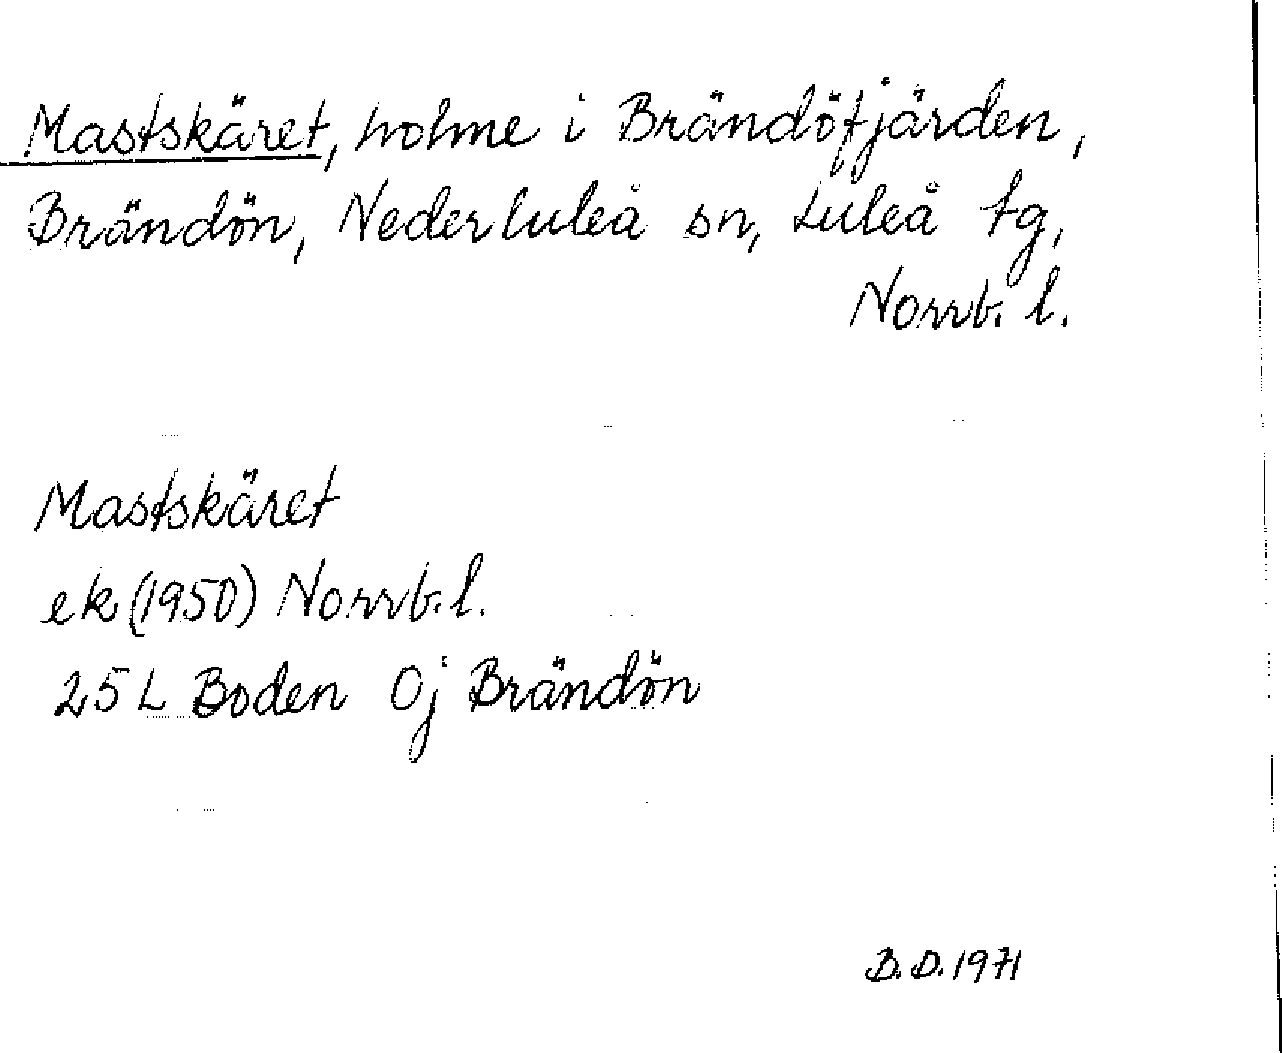 Mastskäret, holme i Brändöfjärden,
Brändön, Nederluleå sn, Luleå tg,
Norrb. l.
Mastskäret
ek (1950) Norrb. l.
25 L Boden Oj Brändön
B.D. 1971